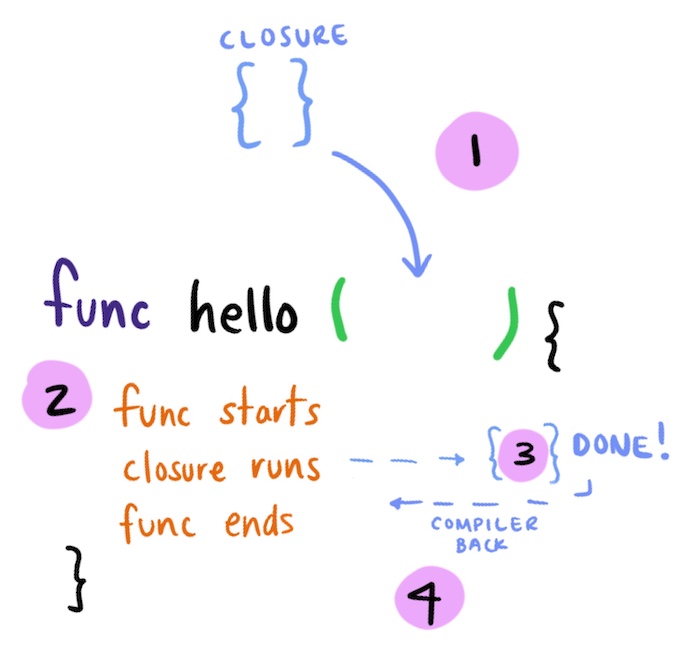 CLOSURE
{ }
1
func hello ( ) {
2 func starts
closure runs {3} DONE!
func ends
COMPILER
BACK
}
4